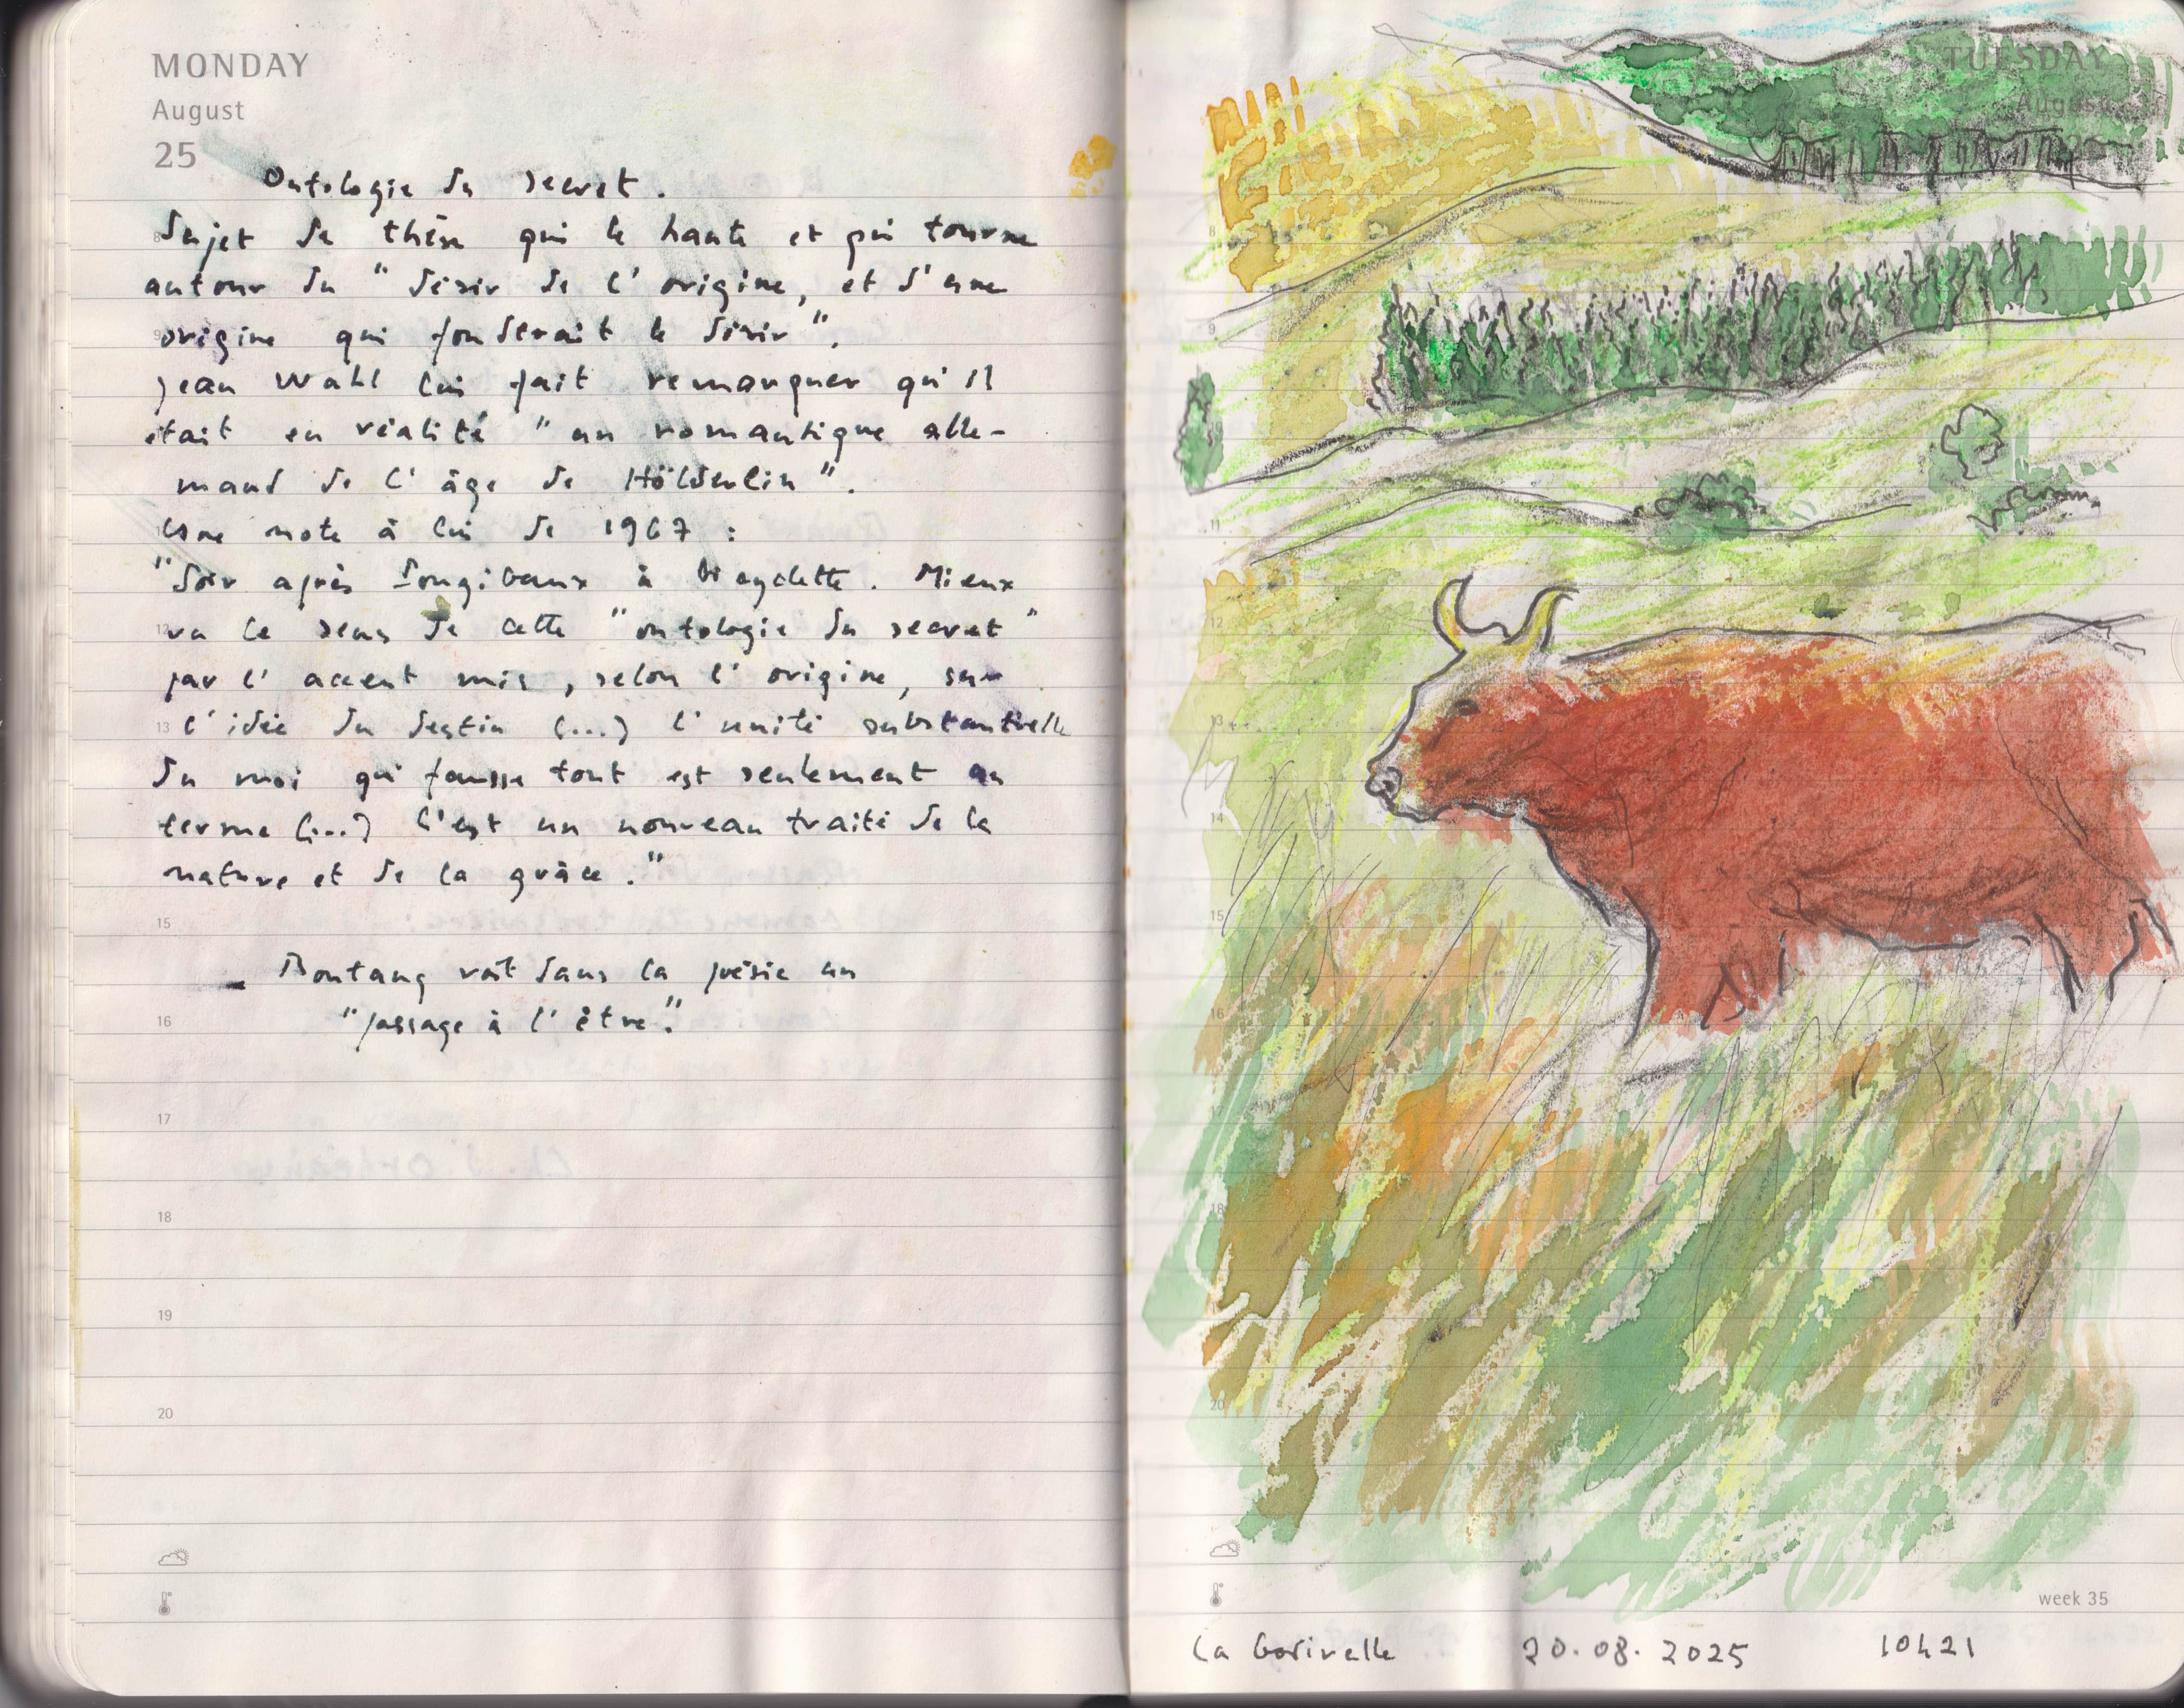 MONDAY
August
25
Ontologie du secret.
8
Sujet de thèse qui le hante et qui tourne
autour du "désir de l'origine, et d'une
9
origine qui fonderait le désir".
Jean Wahl lui fait remarquer qu'il
était en réalité "un romantique alle-
mand de l'âge de Hölderlin".
Une note à lui de 1967 :
"Soir après à bicyclette. Mieux
12
vu le sens de cette "ontologie du secret"
par l'accent mis, selon l'origine, sur
13
l'idée du destin (...) l'unité substantielle
du moi qui fausse tout est seulement un
terme (...) C'est un nouveau traité de la
nature et de la grâce."
15
Boutang voit dans la poésie un
"passage à l'être."
16
17
18
19
20
TUESDAY
August
26
8
9
11
12
13
14
15
16
18
20
week 35
La Borivelle 20.08.2025 10h21